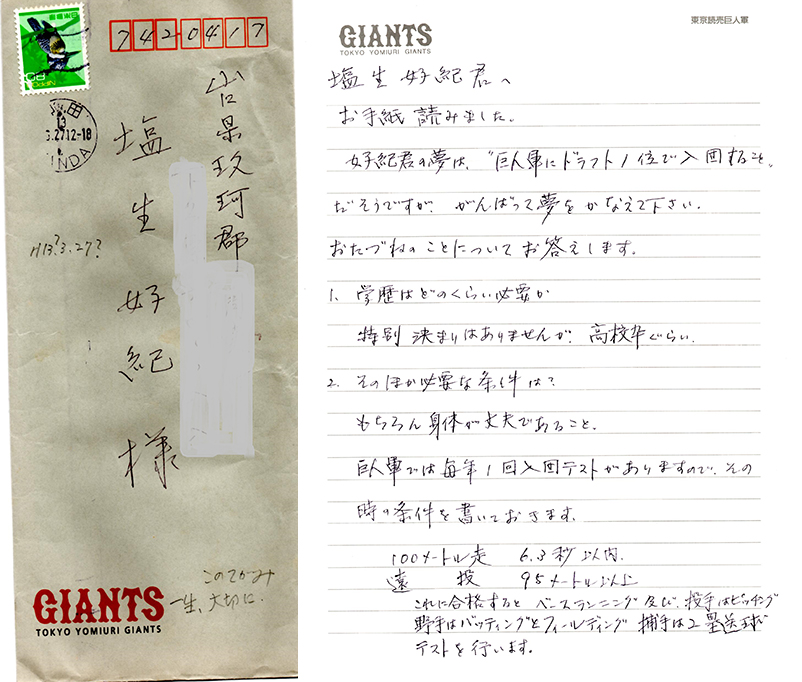 7420417
山口県玖珂郡
塩生好紀様
H13?3.27?
このてがみ
一生、大切に.
GIANTS
TOKYO YOMIURI GIANTS
東京読売巨人軍
GIANTS
TOKYO YOMIURI GIANTS
塩生好紀君へ
お手紙読みました.
好紀君の夢は、"巨人軍にドラフト1位で入団すること"
だそうですが、がんばって夢をかなえて下さい.
おたづねのことについてお答えします.
1. 学歴はどのくらい必要か
特別決まりはありませんが、高校卒ぐらい.
2. そのほか必要な条件は?
もちろん身体が丈夫であること.
巨人軍では毎年1回入団テストがありますので、その
時の条件を書いておきます.
100メートル走 6.3秒以内.
遠投 95メートル以上
これに合格すると ベースランニング及び、投手はピッチング
野手はバッティングとフィールディング 捕手は2塁送球
テストを行います.